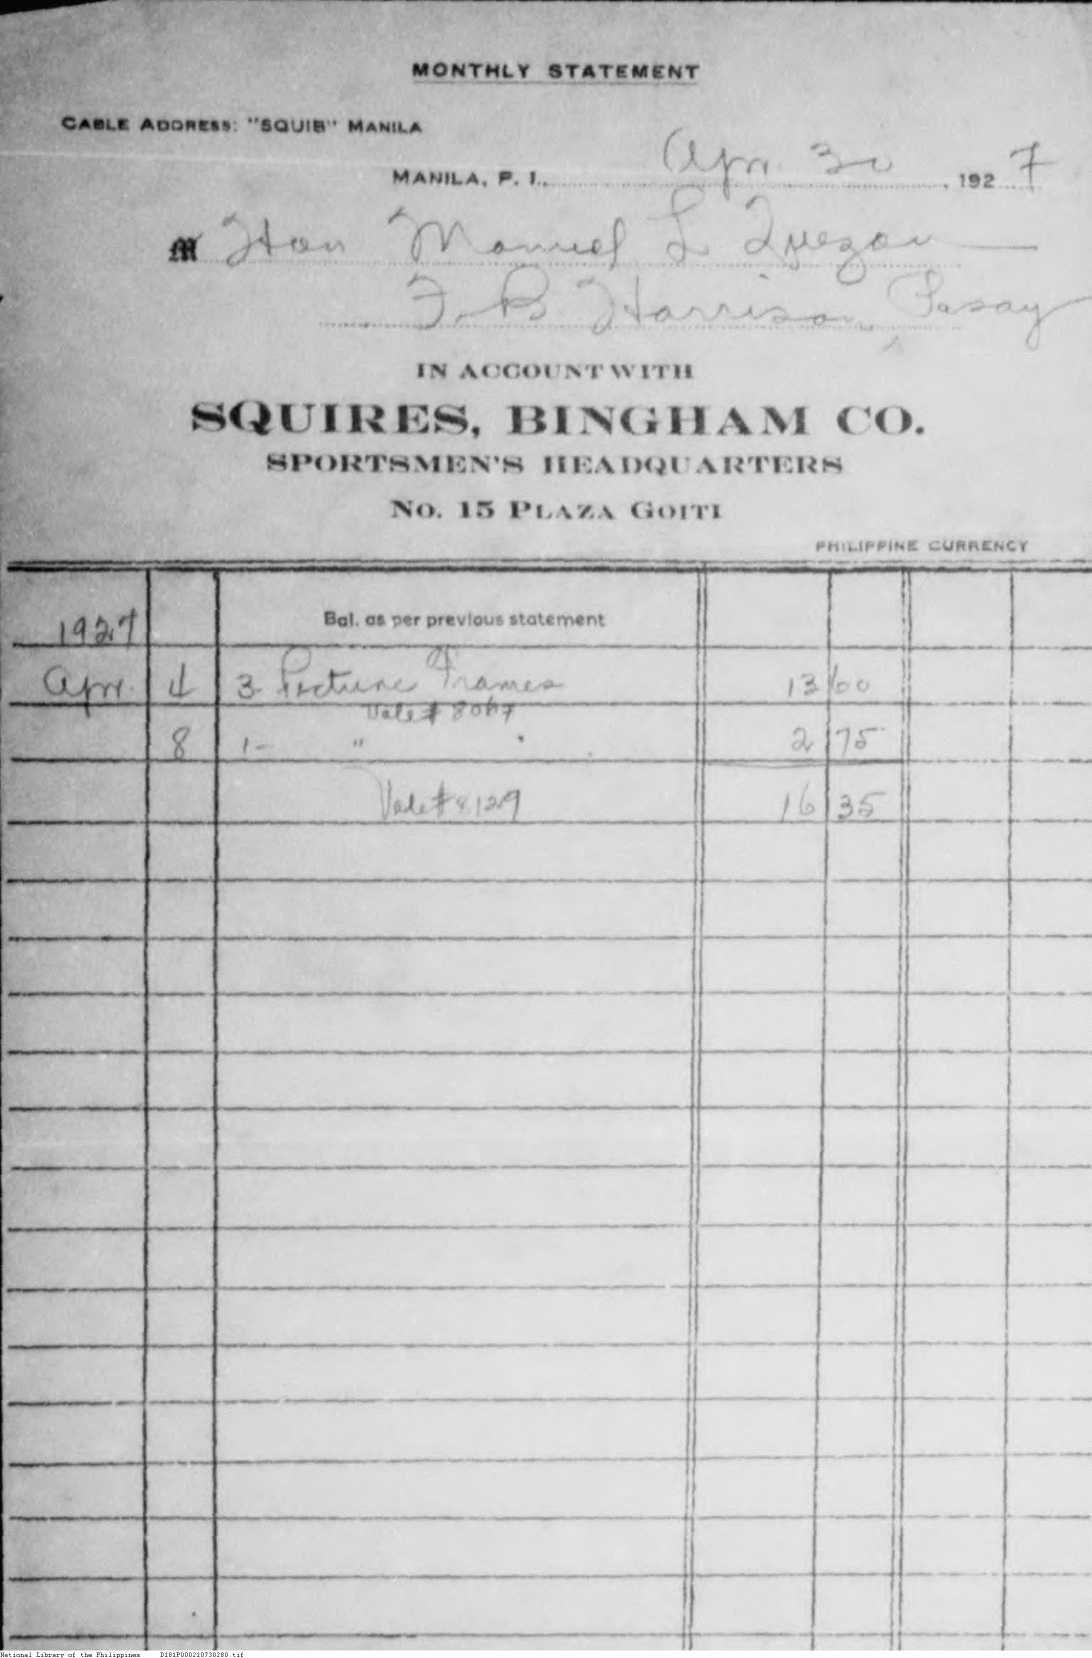 MONTHLY STATEMENT
CABLE ADDRESS: "SQUIB" MANILA
MANILA, P. I., Apr. 30, 1927
M Hon Manuel L Quezon
F. B. Harrison, Pasay
IN ACCOUNT WITH
SQUIRES, BINGHAM CO.
SPORTSMEN'S HEADQUARTERS
No. 15 PLAZA GOITI
PHILIPPINE CURRENCY
1927 Bal. as per previous statement
Apr. 4 3 Picture Frames 13 60
Vale # 8067
8 1- " " 2 75
Vale # 8129 16 35
National Library of the Philippines D181P000210730280.tif